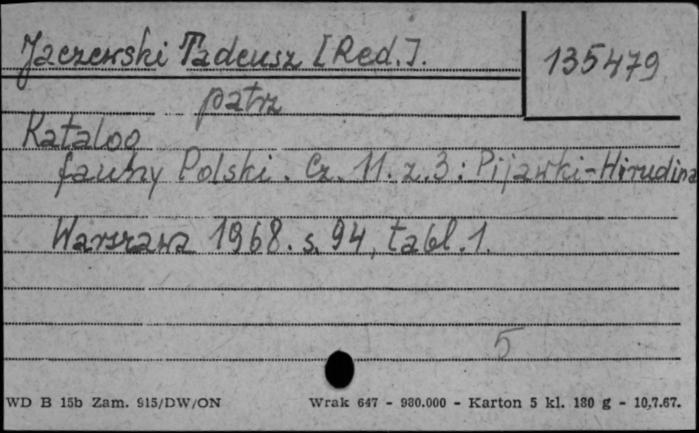 Jaczewski Tadeusz [Red.].
135479
patrz
Katalog
fauny Polski. Cz. 11. z. 3: Pijawki-Hirudina
Warszawa 1968. s. 94, tabl. 1.
5
WD B 15b Zam. 915/DW/ON Wrak 647 - 980.000 - Karton 5 kl. 180 g - 10.7.67.